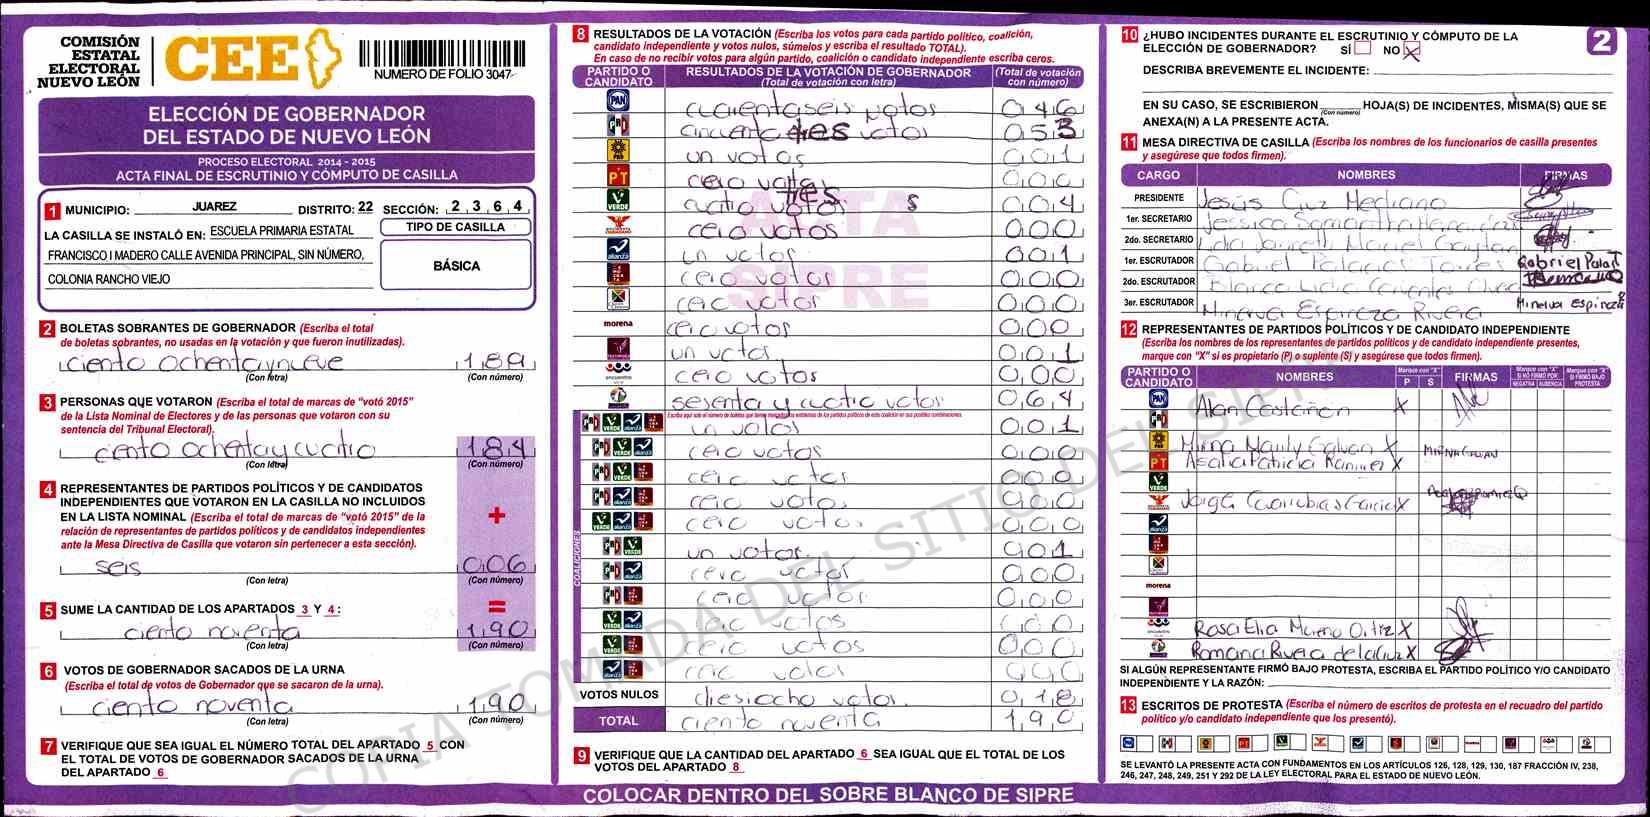 COMISIÓN
ESTATAL
ELECTORAL
NUEVO LEÓN
CEE
NUMERO DE FOLIO 3047
ELECCIÓN DE GOBERNADOR
DEL ESTADO DE NUEVO LEÓN
PROCESO ELECTORAL 2014 - 2015
ACTA FINAL DE ESCRUTINIO Y CÓMPUTO DE CASILLA
1 MUNICIPIO: JUAREZ DISTRITO: 22 SECCIÓN: 2 3 6 4
LA CASILLA SE INSTALÓ EN: ESCUELA PRIMARIA ESTATAL
FRANCISCO I MADERO CALLE AVENIDA PRINCIPAL, SIN NÚMERO,
COLONIA RANCHO VIEJO
TIPO DE CASILLA
BÁSICA
2 BOLETAS SOBRANTES DE GOBERNADOR (Escriba el total
de boletas sobrantes, no usadas en la votación y que fueron inutilizadas).
ciento ochentaynueve 189
(Con letra) (Con número)
3 PERSONAS QUE VOTARON (Escriba el total de marcas de “votó 2015”
de la Lista Nominal de Electores y de las personas que votaron con su
sentencia del Tribunal Electoral).
ciento ochentaycuatro 184
(Con letra) (Con número)
4 REPRESENTANTES DE PARTIDOS POLÍTICOS Y DE CANDIDATOS
INDEPENDIENTES QUE VOTARON EN LA CASILLA NO INCLUIDOS
EN LA LISTA NOMINAL (Escriba el total de marcas de “votó 2015” de la
relación de representantes de partidos políticos y de candidatos independientes
ante la Mesa Directiva de Casilla que votaron sin pertenecer a esta sección).
+
seis 006
(Con letra) (Con número)
=
5 SUME LA CANTIDAD DE LOS APARTADOS 3 Y 4:
ciento noventa 190
(Con letra) (Con número)
6 VOTOS DE GOBERNADOR SACADOS DE LA URNA
(Escriba el total de votos de Gobernador que se sacaron de la urna).
ciento noventa 190
(Con letra) (Con número)
7 VERIFIQUE QUE SEA IGUAL EL NÚMERO TOTAL DEL APARTADO 5 CON
EL TOTAL DE VOTOS DE GOBERNADOR SACADOS DE LA URNA
DEL APARTADO 6
8 RESULTADOS DE LA VOTACIÓN (Escriba los votos para cada partido político, coalición,
candidato independiente y votos nulos, súmelos y escriba el resultado TOTAL).
En caso de no recibir votos para algún partido, coalición o candidato independiente escriba ceros.
PARTIDO O CANDIDATO RESULTADOS DE LA VOTACIÓN DE GOBERNADOR (Total de votación con letra) (Total de votación con número)
PAN cuarentaseis votos 046
PRD cincuenta tres votos 053
PRD un votos 001
PT cero votos 000
VERDE cuatro votos 004
cero votos 000
alianza un votos 001
cero votos 000
cero votos 000
morena cero votos 000
un votos 001
cero votos 000
sesenta y cuatro votos 064
COALICIONES
Escriba aquí solo el número de boletas que tienen marcados los emblemas de los partidos políticos de esta coalición en sus posibles combinaciones.
un votos 001
cero votos 000
cero votos 000
cero votos 000
cero votos 000
un votos 001
cero votos 000
cero votos 000
cero votos 000
cero votos 000
cero votos 000
VOTOS NULOS diesiocho votos 018
TOTAL ciento noventa 190
ACTA
SIPRE
9 VERIFIQUE QUE LA CANTIDAD DEL APARTADO 6 SEA IGUAL QUE EL TOTAL DE LOS
VOTOS DEL APARTADO 8
10 ¿HUBO INCIDENTES DURANTE EL ESCRUTINIO Y CÓMPUTO DE LA
ELECCIÓN DE GOBERNADOR? SÍ NO X
2
DESCRIBA BREVEMENTE EL INCIDENTE:
EN SU CASO, SE ESCRIBIERON HOJA(S) DE INCIDENTES, MISMA(S) QUE SE
(Con número)
ANEXA(N) A LA PRESENTE ACTA.
11 MESA DIRECTIVA DE CASILLA (Escriba los nombres de los funcionarios de casilla presentes
y asegúrese que todos firmen).
CARGO NOMBRES FIRMAS
PRESIDENTE Jesús Cruz Medrano
1er. SECRETARIO Jessica Samantha
2do. SECRETARIO Lidia Janneth Maciel Gaytan
1er. ESCRUTADOR Gabriel Palacios Torres Gabriel Pala T
2do. ESCRUTADOR Blanca Lidia
3er. ESCRUTADOR Minerva Espinoza Rivera Minerva Espinoza R
12 REPRESENTANTES DE PARTIDOS POLÍTICOS Y DE CANDIDATO INDEPENDIENTE
(Escriba los nombres de los representantes de partidos políticos y de candidato independiente presentes,
marque con “X” si es propietario (P) o suplente (S) y asegúrese que todos firmen).
PARTIDO O CANDIDATO NOMBRES Marque con "X" P S FIRMAS Marque con "X" SI NO FIRMÓ POR: NEGATIVA AUSENCIA Marque con "X" SI FIRMÓ BAJO PROTESTA
PAN Alan Castañon X
Mirna Nayly Galvan X MIRNA GALVAN
PT Asalia Patricia Ramirez X
Jorge Covarrubias Garcia X
morena
Rosa Elia Moreno Ortiz X
Romana Rivera de la Cruz X
SI ALGÚN REPRESENTANTE FIRMÓ BAJO PROTESTA, ESCRIBA EL PARTIDO POLÍTICO Y/O CANDIDATO
INDEPENDIENTE Y LA RAZÓN:
13 ESCRITOS DE PROTESTA (Escriba el número de escritos de protesta en el recuadro del partido
político y/o candidato independiente que los presentó).
SE LEVANTÓ LA PRESENTE ACTA CON FUNDAMENTOS EN LOS ARTÍCULOS 126, 128, 129, 130, 187 FRACCIÓN IV, 238,
246, 247, 248, 249, 251 Y 292 DE LA LEY ELECTORAL PARA EL ESTADO DE NUEVO LEÓN.
COLOCAR DENTRO DEL SOBRE BLANCO DE SIPRE
COPIA TOMADA DEL SITIO DEL SIPRE